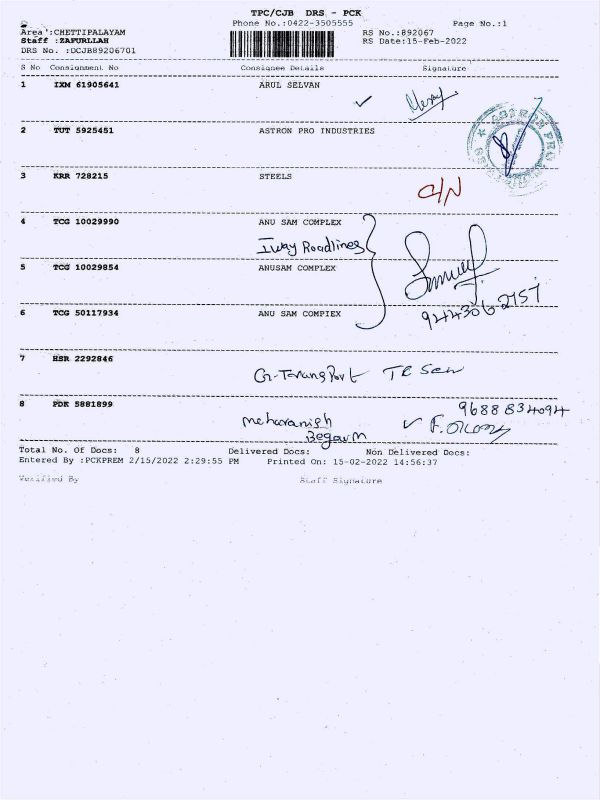 TPC/CJB DRS - PCK
Phone No.:0422-3505555 Page No.:1
Area :CHETTIPALAYAM RS No.:892067
Staff :ZAPURLLAH RS Date:15-Feb-2022
DRS No. :DCJB89206701
S No Consignment No Consignee Details Signature
1 IXM 61905641 ARUL SELVAN
2 TUT 5925451 ASTRON PRO INDUSTRIES
3 KRR 728215 STEELS
C/N
4 TCG 10029990 ANU SAM COMPLEX
Iway Roadlines
5 TCG 10029854 ANUSAM COMPLEX
6 TCG 50117934 ANU SAM COMPIEX
944306 2757
7 HSR 2292846
8 PDK 5881899 9688834094
Begaum
Total No. Of Docs: 8 Delivered Docs: Non Delivered Docs:
Entered By :PCKPREM 2/15/2022 2:29:55 PM Printed On: 15-02-2022 14:56:37
Verified By Staff Signature